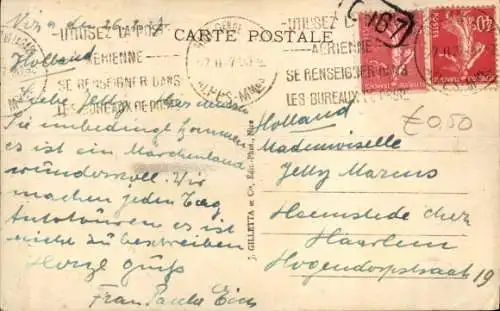 Nizza den 26.2.27
CARTE POSTALE
UTILISEZ LA POSTE
AERIENNE
SE RENSEIGNER DANS
LES BUREAUX DE POSTE
UTILISEZ LA
AERIENNE
SE RENSEIGNER DANS
LES BUREAUX DE POSTE
ALPES-MMES
167
Holland
Liebe Jelly! Hier müssten
Sie unbedingt kommen
es ist ein Märchenland
wundervoll. Wir
machen jeden Tag
Autotouren es ist
nicht zu beschreiben
Herzl. Gruß
Frau Paula
J. GILLETTA et Cie, Édit.-Phot., Nice
£0,50
Holland
Mademoiselle
Jelly Marcus
Heemstede chez
Haarlem
Hogendorpstraat 19